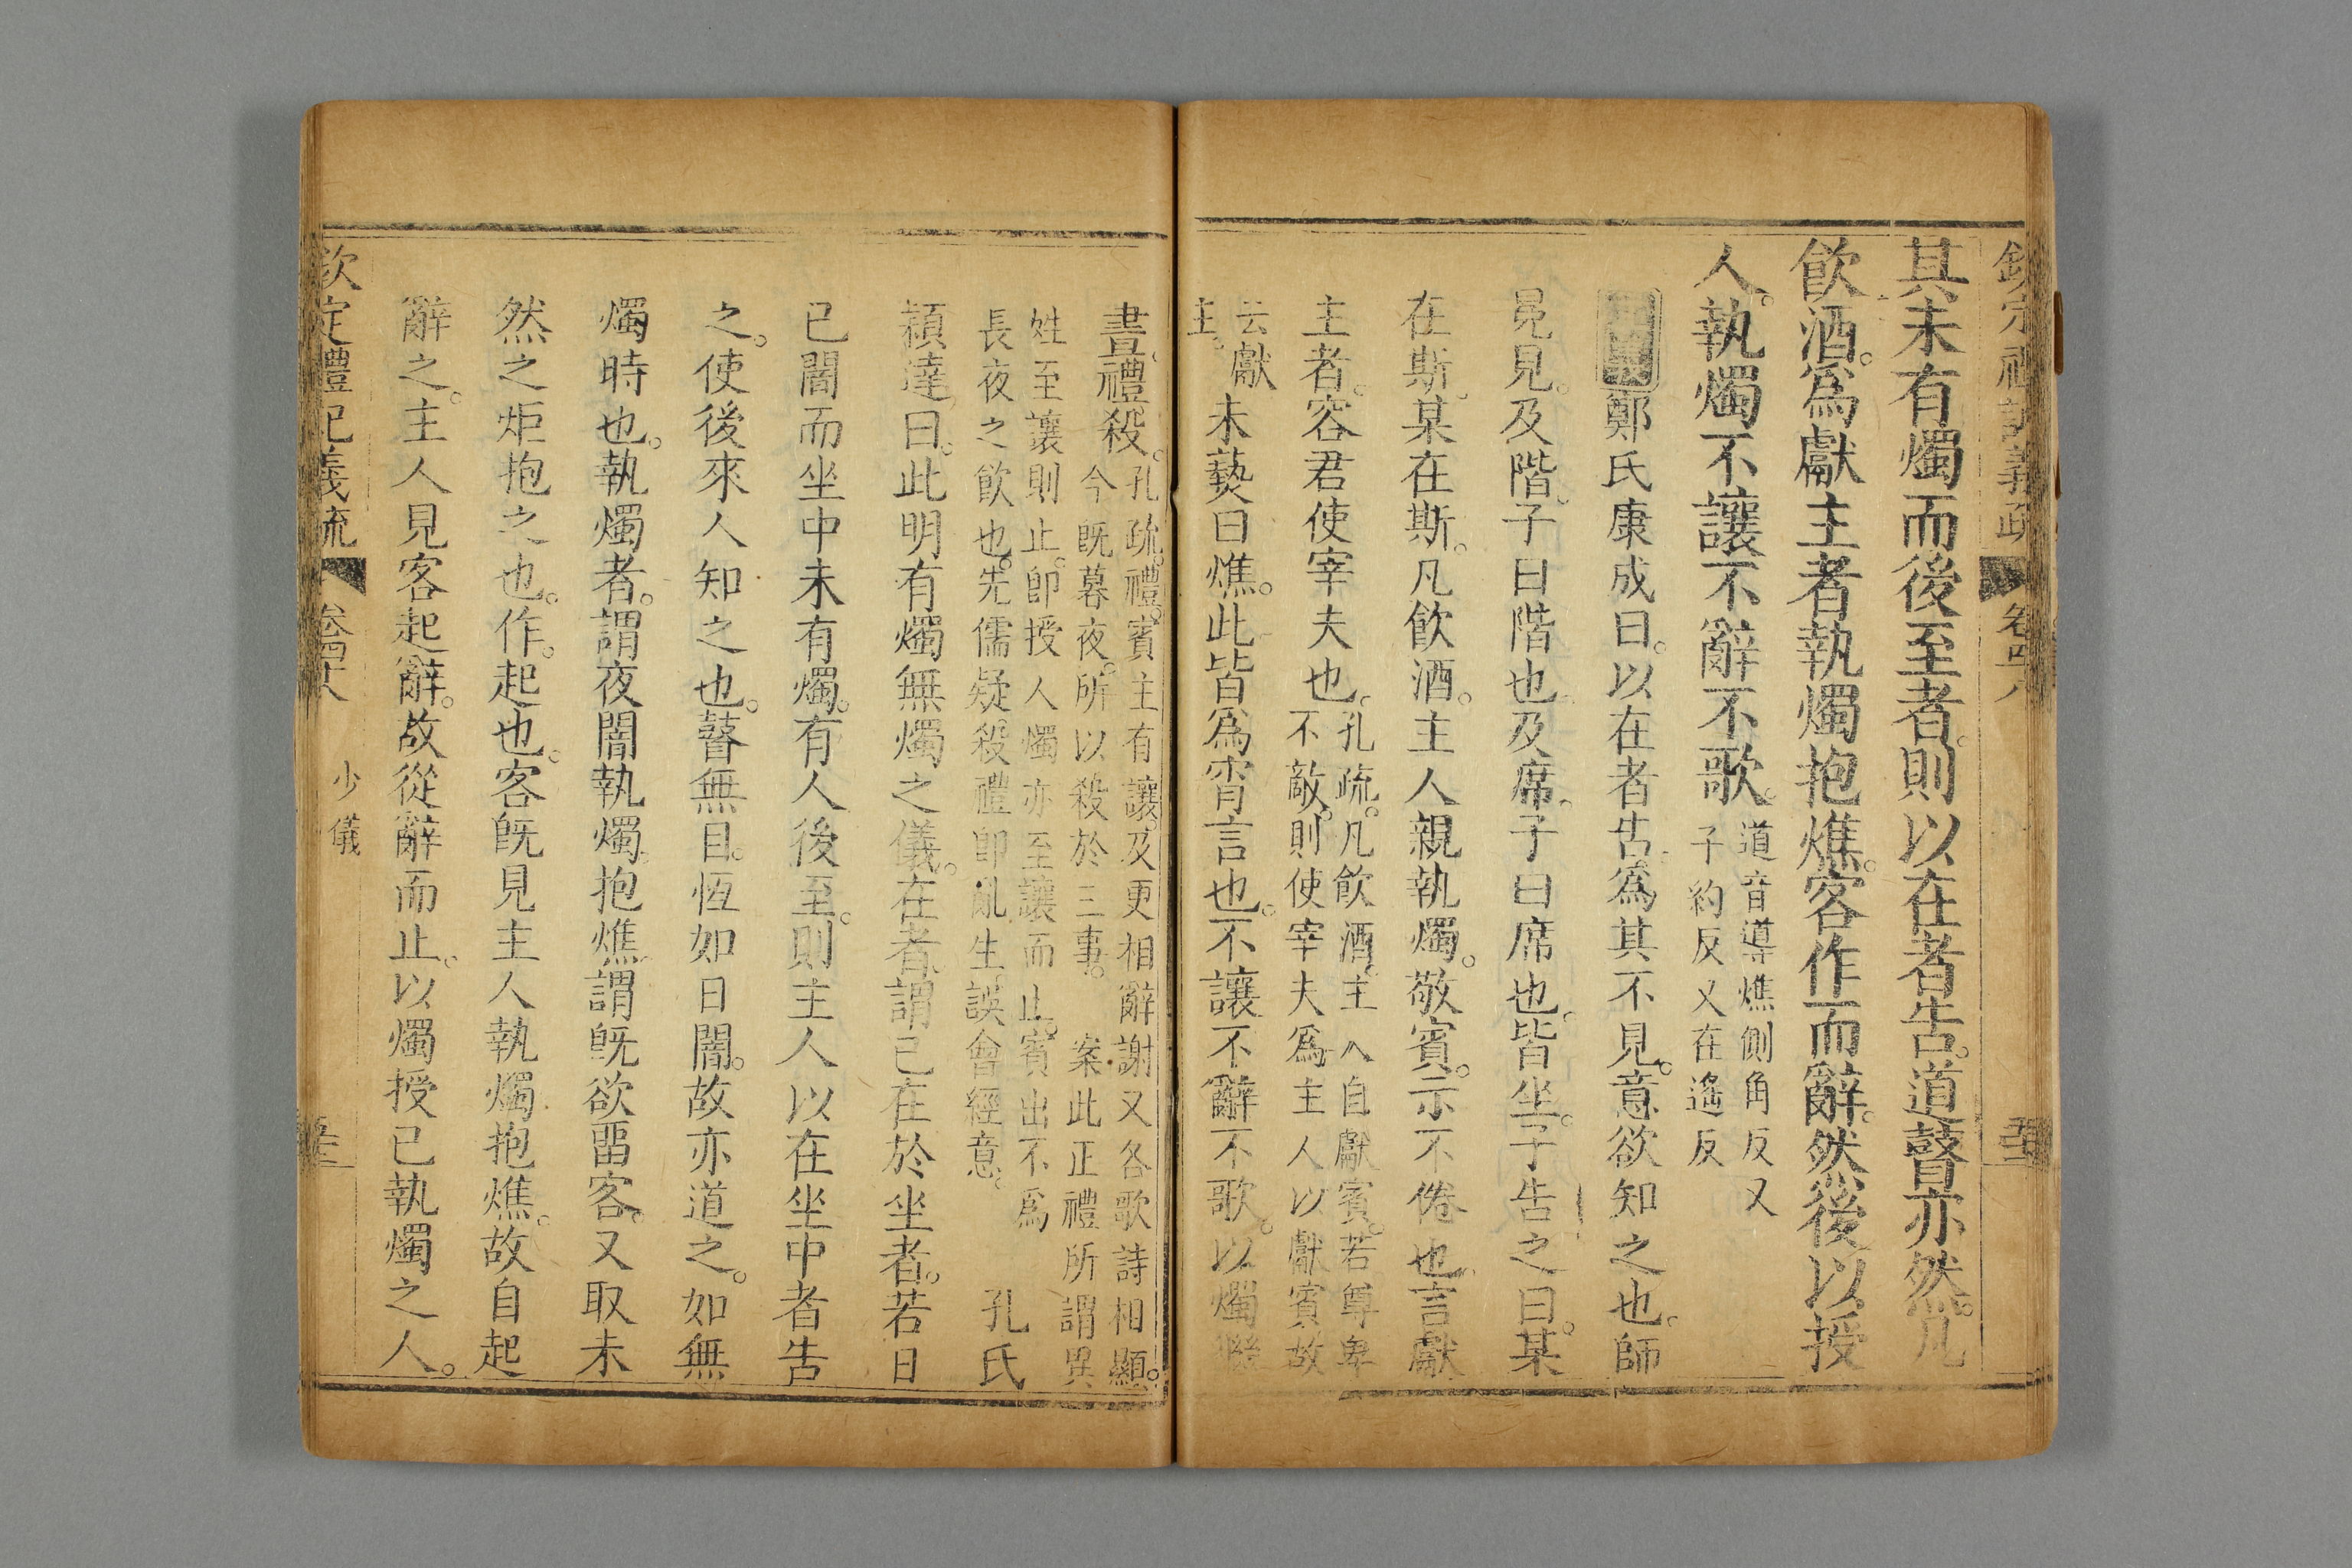 其未有燭而後至者。則以在者告。道瞽亦然。凡
飲酒。爲獻主者執燭抱燋。客作而辭。然後以授
人。執燭不讓不辭不歌。道音導燋側角反又
子約反又在遙反
鄭氏康成曰。以在者告。爲其不見。意欲知之也。師
冕見。及階。子曰階也。及席。子曰席也。皆坐。子告之曰。某
在斯。某在斯。凡飲酒。主人親執燭。敬賓。示不倦也。言獻
主者。容君使宰夫也。孔疏。凡飲酒。主人自獻賓。若尊卑
不敵。則使宰夫爲主人以獻賓故
云獻
主。未爇曰燋。此皆爲宵言也。不讓不辭不歌。以燭繼
晝。禮殺。孔疏。禮。賓主有讓。及更相辭謝又各歌詩相顯。
今既暮夜。所以殺於三事。案此正禮所謂異
姓至讓則止。卽授人燭亦至讓而止。賓出不爲
長夜之飲也。先儒疑殺禮卽亂生。誤會經意。孔氏
穎達曰。此明有燭無燭之儀。在者。謂已在於坐者。若日
已闇而坐中未有燭。有人後至。則主人以在坐中者告
之。使後來人知之也。瞽無目。恆如日闇。故亦道之。如無
燭時也。執燭者。謂夜闇執燭。抱燋謂旣欲畱客。又取未
然之炬抱之也。作。起也。客旣見主人執燭抱燋。故自起
辭之。主人見客起辭。故從辭而止。以燭授已執燭之人。
欽定禮記義疏 卷四十八 少儀